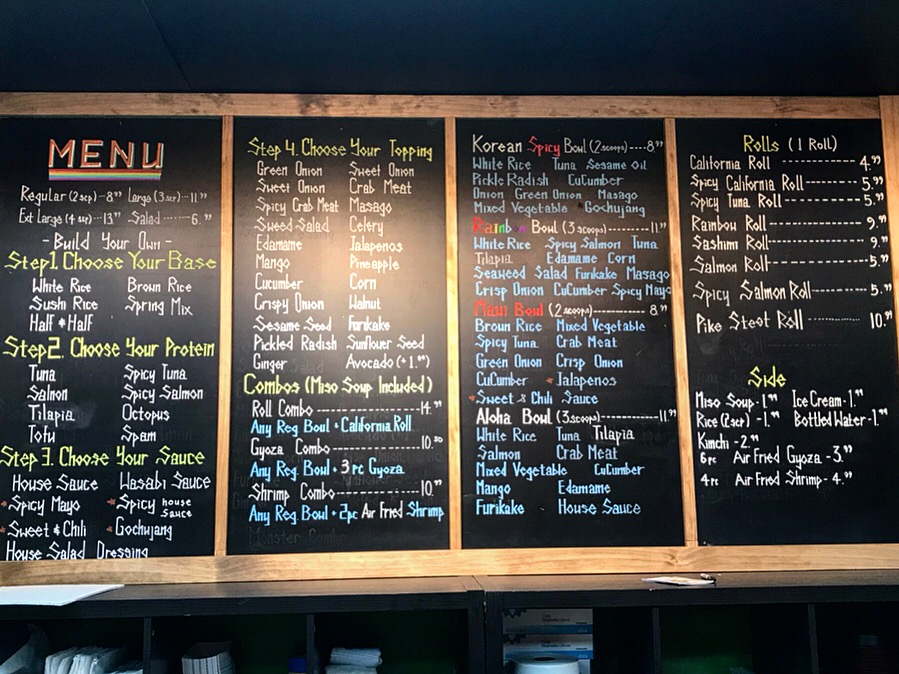 MENU
Regular (2scp)--8.99 Large (3scr)--11.99
Ext Large (4scr)--13.99 Salad------6.99
-Build Your Own-
Step1 Choose Your Base
White Rice Brown Rice
Sushi Rice Spring Mix
Half * Half
Step2. Choose Your Protein
Tuna Spicy Tuna
Salmon Spicy Salmon
Tilapia Octopus
Tofu Spam
Step 3. Choose Your Sauce
House Sauce Wasabi Sauce
*Spicy Mayo *Spicy house sauce
*Sweet & Chili *Gochujang
House Salad Dressing
Step 4. Choose Your Topping
Green Onion Sweet Onion
Sweet Onion Crab Meat
Spicy Crab Meat Masago
Sweed Salad Celery
Edamame Jalapenos
Mango Pineapple
Cucumber Corn
Crispy Onion Walnut
Sesame Seed Furikake
Pickled Radish Sunflower Seed
Ginger Avocado (+1.99)
Combos (Miso Soup Included)
Roll Combo----------------14.99
Any Reg Bowl + California Roll
Gyoza Combo--------------10.50
Any Reg Bowl + 3 pc Gyoza
Shrimp Combo-------------10.99
Any Reg Bowl + 2pc Air Fried Shrimp
Korean Spicy Bowl (2scoops)----8.99
White Rice Tuna Sesame Oil
Pickle Radish CuCumber
Onion Green Onion Masago
Mixed Vegetable *Gochujang
Rainbow Bowl (3scoops)---------11.99
White Rice Spicy Salmon Tuna
Tilapia Edamame Corn
Seaweed Salad Furikake Masago
Crisp Onion CuCumber Spicy Mayo
Maui Bowl (2scoops)------------8.99
Brown Rice Mixed Vegetable
Spicy Tuna Crab Meat
Green Onion Crisp Onion
CuCumber *Jalapenos
*Sweet & Chili Sauce
Aloha Bowl (3scoops)-----------11.99
White Rice Tuna Tilapia
Salmon Crab Meat
Mixed Vegetable CuCumber
Mango Edamame
Furikake House Sauce
Rolls (1 Roll)
California Roll ------------4.99
Spicy California Roll-------5.99
Spicy Tuna Roll-------------5.99
Rainbow Roll----------------9.99
Sashimi Roll----------------9.99
Salmon Roll-----------------5.99
Spicy Salmon Roll-----------5.99
Pike Steot Roll ............10.99
Side
Miso Soup-1.99 Ice Cream-1.99
Rice (2scr) -1.99 Bottled Water-1.99
Kimchi -2.99
6pc Air Fried Gyoza -3.99
4pc Air Fried Shrimp- 4.99